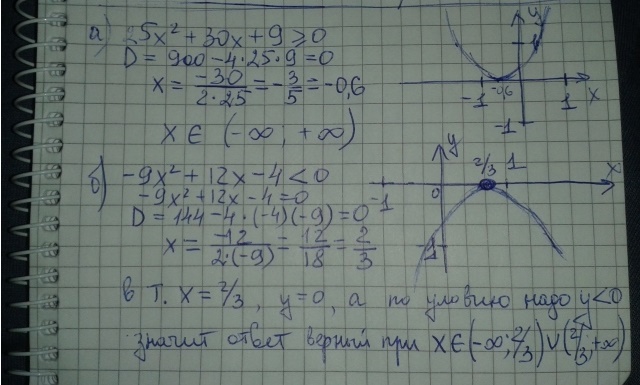 а) 25x² + 30x + 9 ⩾ 0
D = 900 – 4·25·9 = 0
x = -30/2·25 = -3/5 = -0,6
x ∈ (-∞; +∞)
y
1
-1 -0,6 1 x
-1
б) -9x² + 12x - 4 < 0
-9x² + 12x - 4 = 0
D = 144 - 4·(-4)(-9) = 0
x = -12/2·(-9) = 12/18 = 2/3
y
2/3 1 x
-1 0
-1
в т. x = 2/3, y = 0, а по условию надо y < 0
значит ответ верный при x ∈ (-∞; 2/3) ∪ (2/3; +∞)